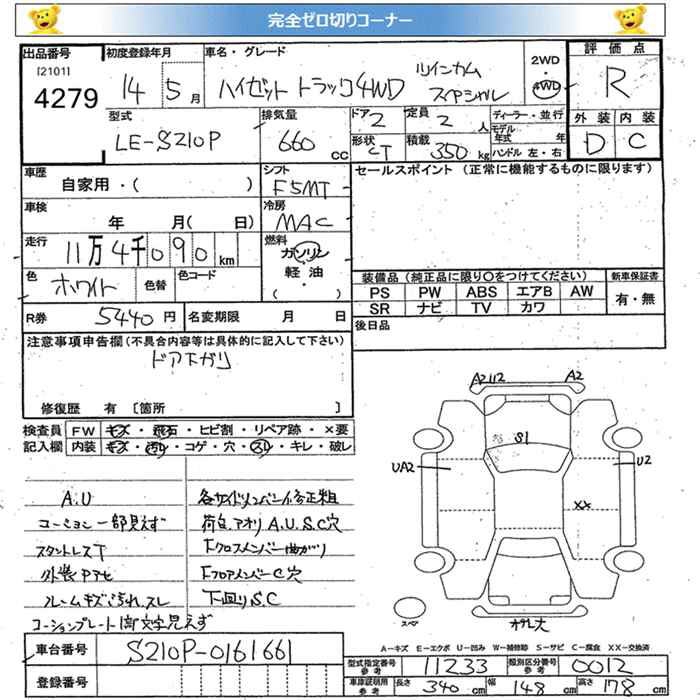 完全ゼロ切りコーナー
出品番号 初度登録年月 車名・グレード 2WD 評価点
[2101] 4279 14 5月 ハイゼット トラック4WD ツインカム スペシャル 4WD R
型式 排気量 ドア 2 定員 2人 ディーラー・並行 外装 内装
LE-S210P 660cc 形状 CT 積載 350kg モデル年式 年 ハンドル 左・右 D C
車歴 シフト セールスポイント (正常に機能するものに限ります)
自家用・( ) F5MT
車検 冷房
年 月( 日) MAC
走行 燃料
11万4千090km ガソリン・軽油・( )
色 ホワイト 色替 色コード
装備品(純正品に限り○をつけてください) 新車保証書
PS PW ABS エアB AW 有・無
SR ナビ TV カワ
R券 5440円 名変期限 月 日 後日品
注意事項申告欄(不具合内容等は具体的に記入して下さい)
ドア下ガリ
修復歴 有 [箇所 ]
検査員 FW キズ・飛石・ヒビ割・リペア跡・×要
記入欄 内装 キズ・汚れ・コゲ・穴・スレ・キレ・破レ
A.U
コーション一部見えず
外装
ルームキズ ヨゴレ.スレ
コーションプレート1部文字見えず
各サイドメンバー修正粗
荷台.アオリ A.U.S.C穴
Fクロスメンバー曲がり
FフロアメンバーC穴
下回りS.C
A2 U2 A2
S1
UA2 U2
XX
スペア
A−キズ E−エクボ U−凹み W−補修跡 S−サビ C−腐食 XX−交換済
車台番号 S210P-0161661
登録番号
型式指定番号 参考 11233 類別区分番号 参考 0012
車庫証明用 参考 長さ 340cm 幅 148cm 高さ 178cm